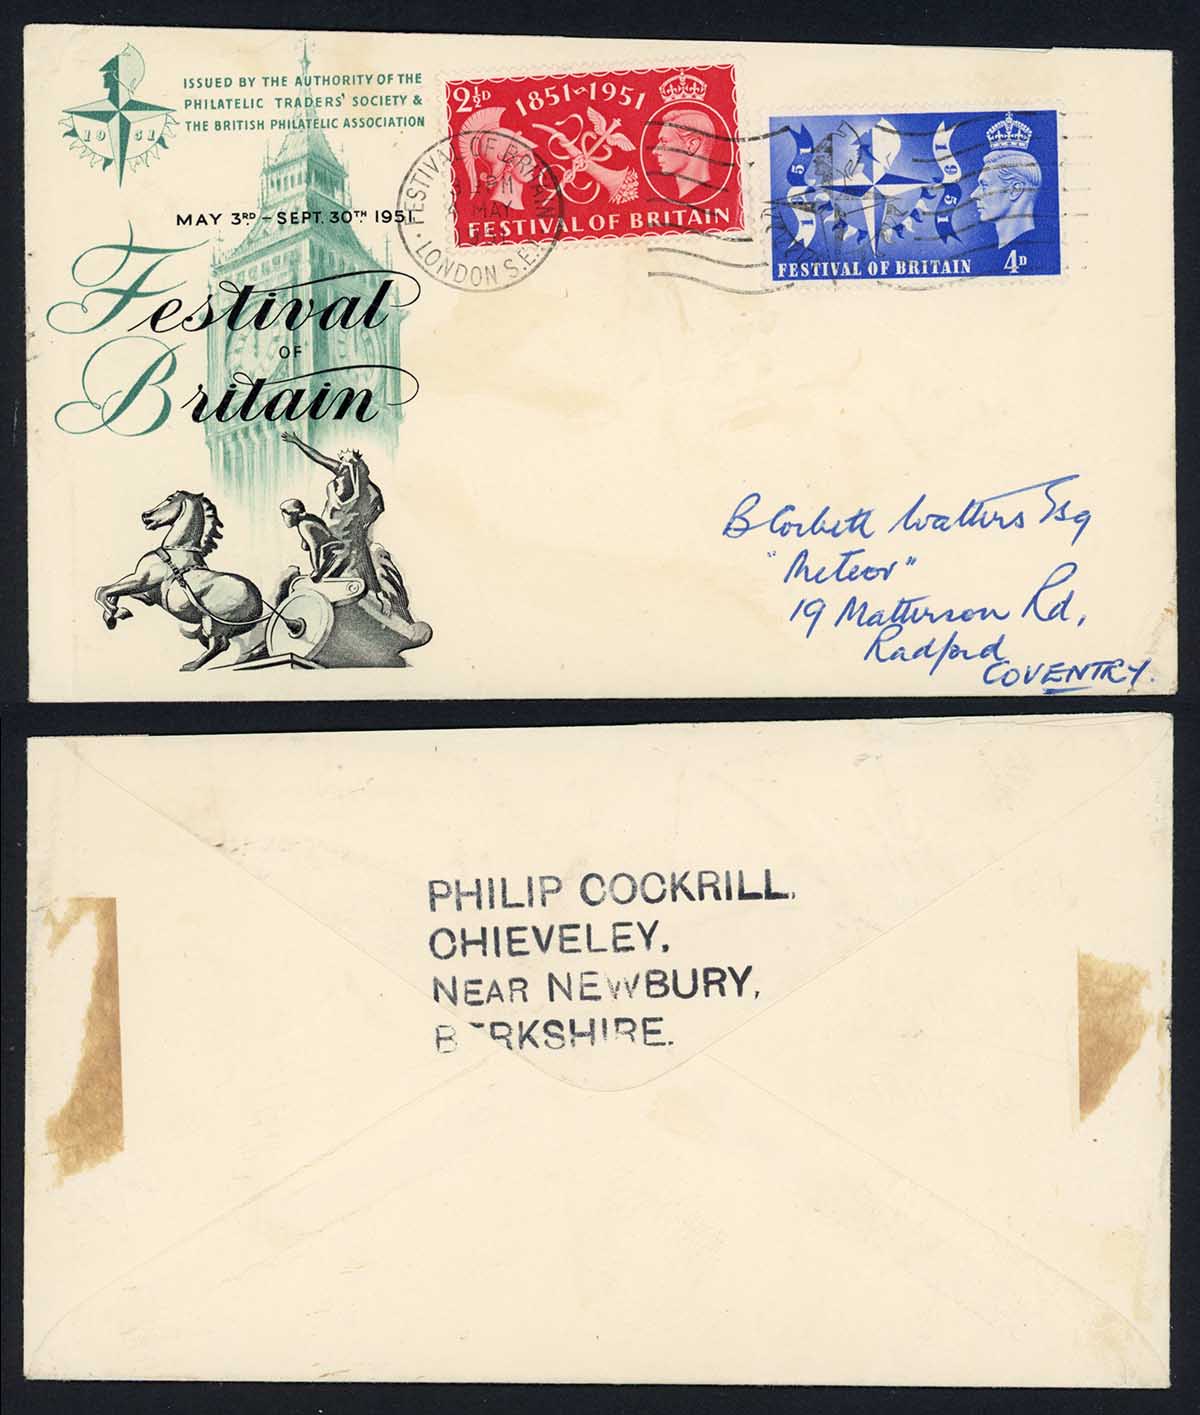 ISSUED BY THE AUTHORITY OF THE
PHILATELIC TRADERS' SOCIETY &
THE BRITISH PHILATELIC ASSOCIATION
1951
MAY 3RD – SEPT. 30TH 1951
Festival
OF
Britain
2½D
1851-1951
FESTIVAL OF BRITAIN
FESTIVAL OF BRITAIN
PM
MAY
LONDON S.E.
1851
1951
FESTIVAL OF BRITAIN 4D
B Corbett Watters Esq
"Meteor"
19 Matterson Rd,
Radford
COVENTRY.
PHILIP COCKRILL,
CHIEVELEY,
NEAR NEWBURY,
BERKSHIRE.